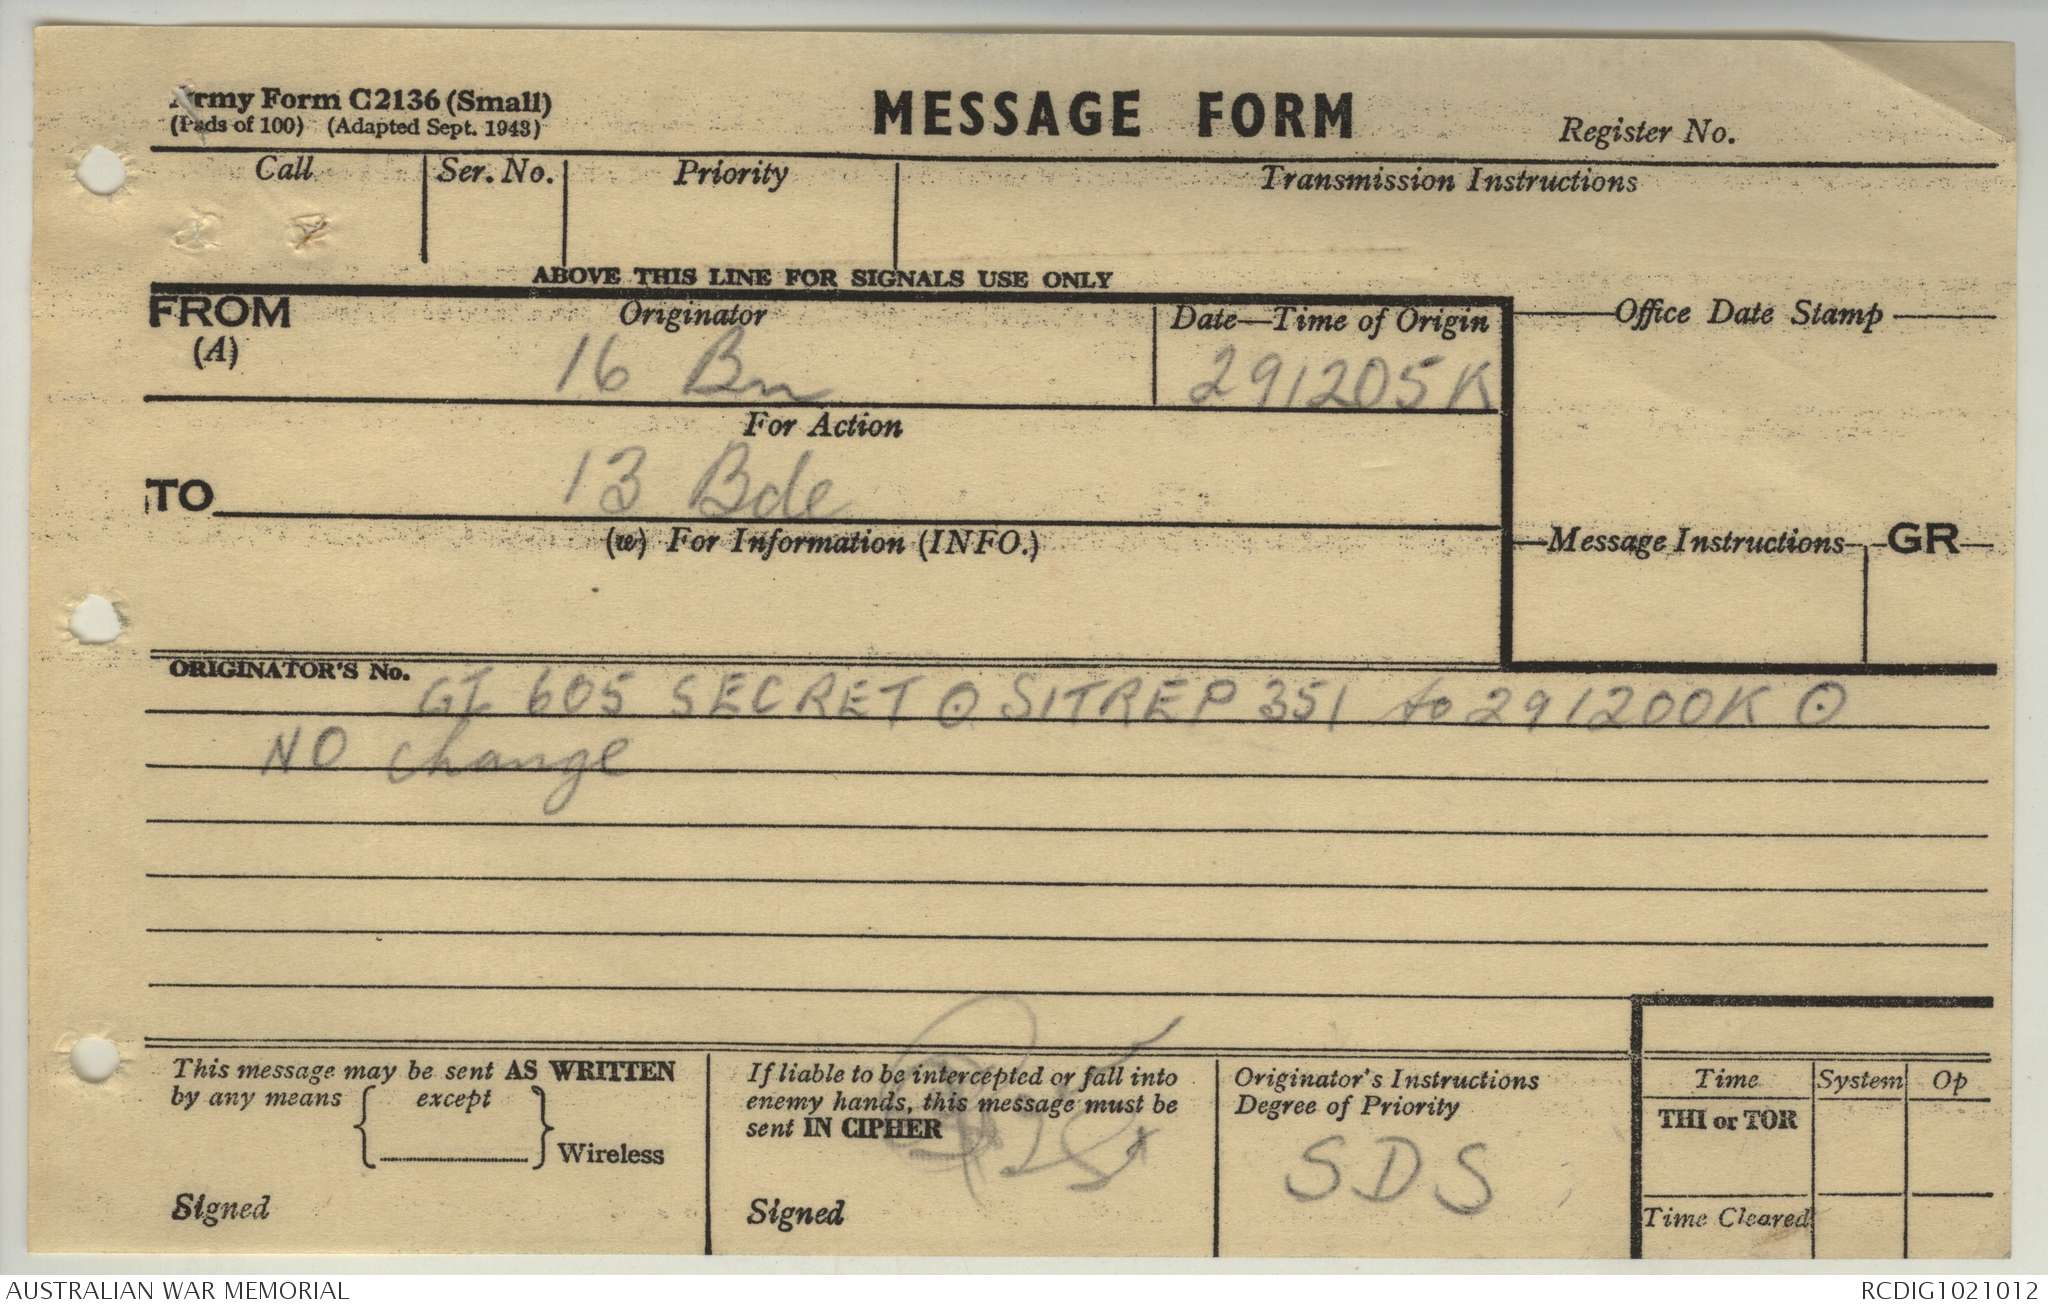 Army Form C2136 (Small)
(Pads of 100) (Adapted Sept. 1943)
MESSAGE FORM
Register No.
Call
Ser. No.
Priority
Transmission Instructions
ABOVE THIS LINE FOR SIGNALS USE ONLY
FROM
(A)
Originator
16 Bn
Date—Time of Origin
291205K
Office Date Stamp
For Action
TO
13 Bde
(w) For Information (INFO.)
Message Instructions
GR
ORIGINATOR'S No.
GI 605 SECRET ⊙ SITREP 351 to 291200K ⊙
NO change
This message may be sent AS WRITTEN
by any means { except }
Wireless
Signed
If liable to be intercepted or fall into
enemy hands, this message must be
sent IN CIPHER
Signed
Originator's Instructions
Degree of Priority
SDS
Time
System
Op
THI or TOR
Time Cleared
AUSTRALIAN WAR MEMORIAL
RCDIG1021012